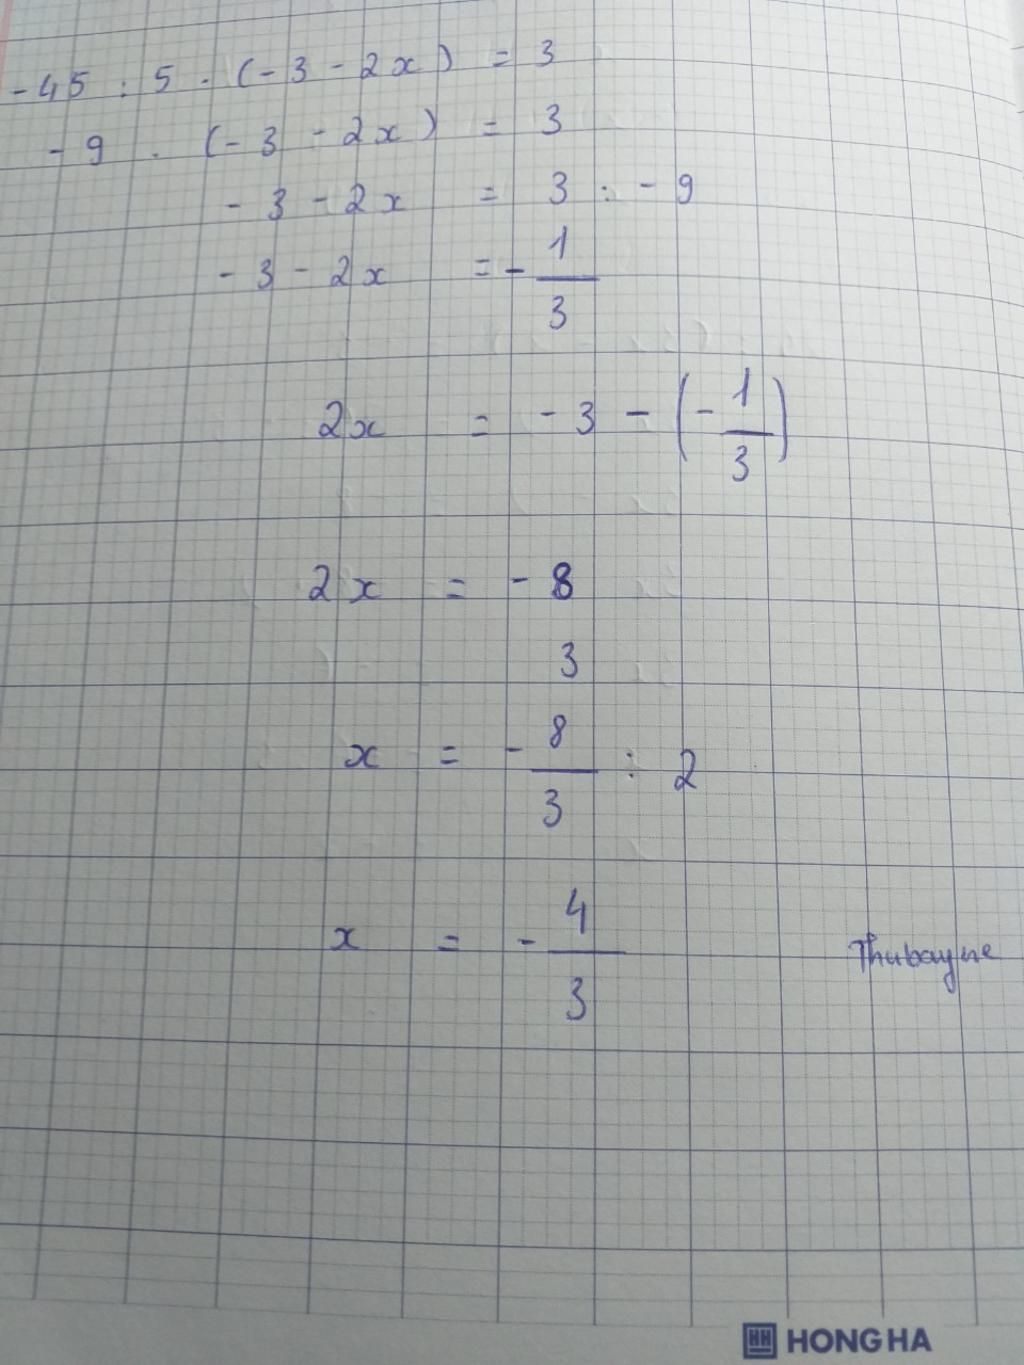 -45 : 5 . (-3 - 2x) = 3
-9 . (-3 - 2x) = 3
-3 - 2x = 3 : -9
-3 - 2x = - 1/3
2x = -3 - (- 1/3)
2x = - 8
3
x = - 8/3 : 2
x = - 4/3
Thubayne
HONG HA